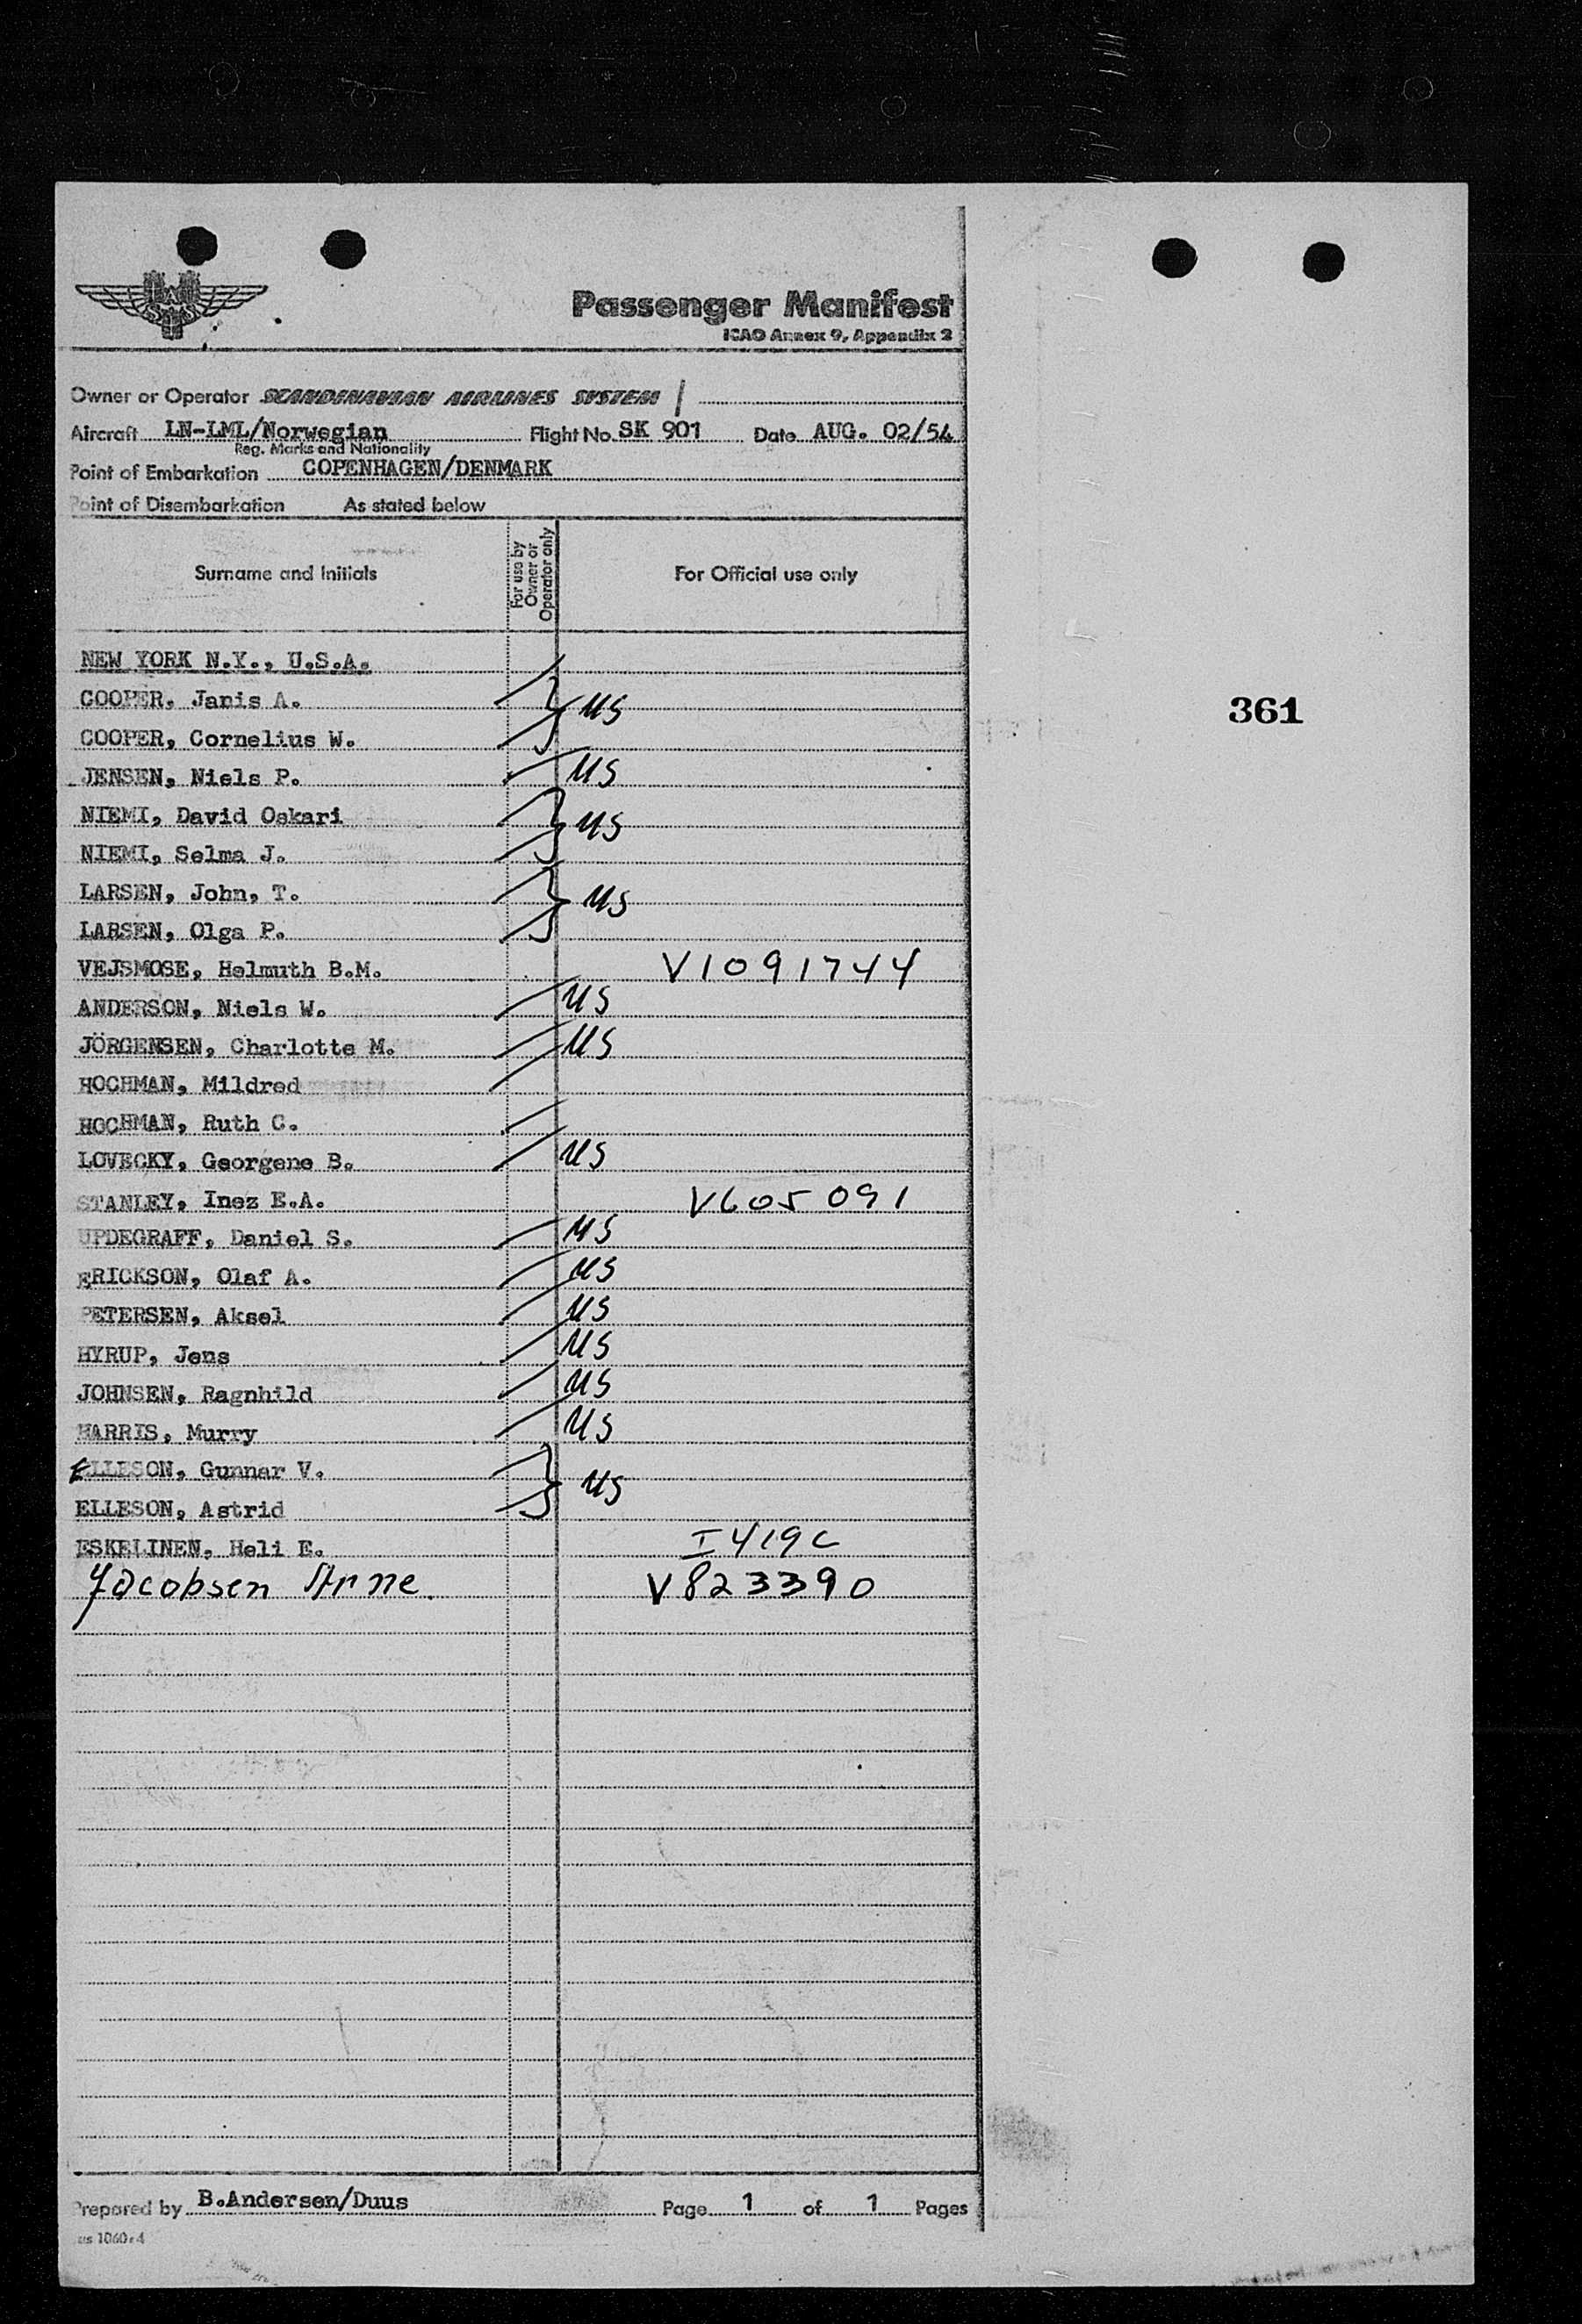 SAS
Passenger Manifest
ICAO Annex 9, Appendix 2
Owner or Operator SCANDINAVIAN AIRLINES SYSTEM /
Aircraft LN-LML/Norwegian Flight No. SK 901 Date AUG. 02/54
Reg. Marks and Nationality
Point of Embarkation COPENHAGEN/DENMARK
Point of Disembarkation As stated below
Surname and Initials For use by Owner or Operator only For Official use only
NEW YORK N.Y., U.S.A.
COOPER, Janis A. US
361
COOPER, Cornelius W.
JENSEN, Niels P. US
NIEMI, David Oskari US
NIEMI, Selma J.
LARSEN, John, T. US
LARSEN, Olga P.
VEJSMOSE, Helmuth B.M. V1091744
ANDERSON, Niels W. US
JÖRGENSEN, Charlotte M. US
HOCHMAN, Mildred
HOCHMAN, Ruth C.
LOVECKY, Georgene B. US
STANLEY, Inez E.A. V605091
UPDEGRAFF, Daniel S. US
ERICKSON, Olaf A. US
PETERSEN, Aksel US
HYRUP, Jens US
JOHNSEN, Ragnhild US
HARRIS, Murry US
ELLESON, Gunnar V. US
ELLESON, Astrid
ESKELINEN, Heli E. I419C
Jacobsen Arne. V823390
Prepared by B.Andersen/Duus Page 1 of 1 Pages